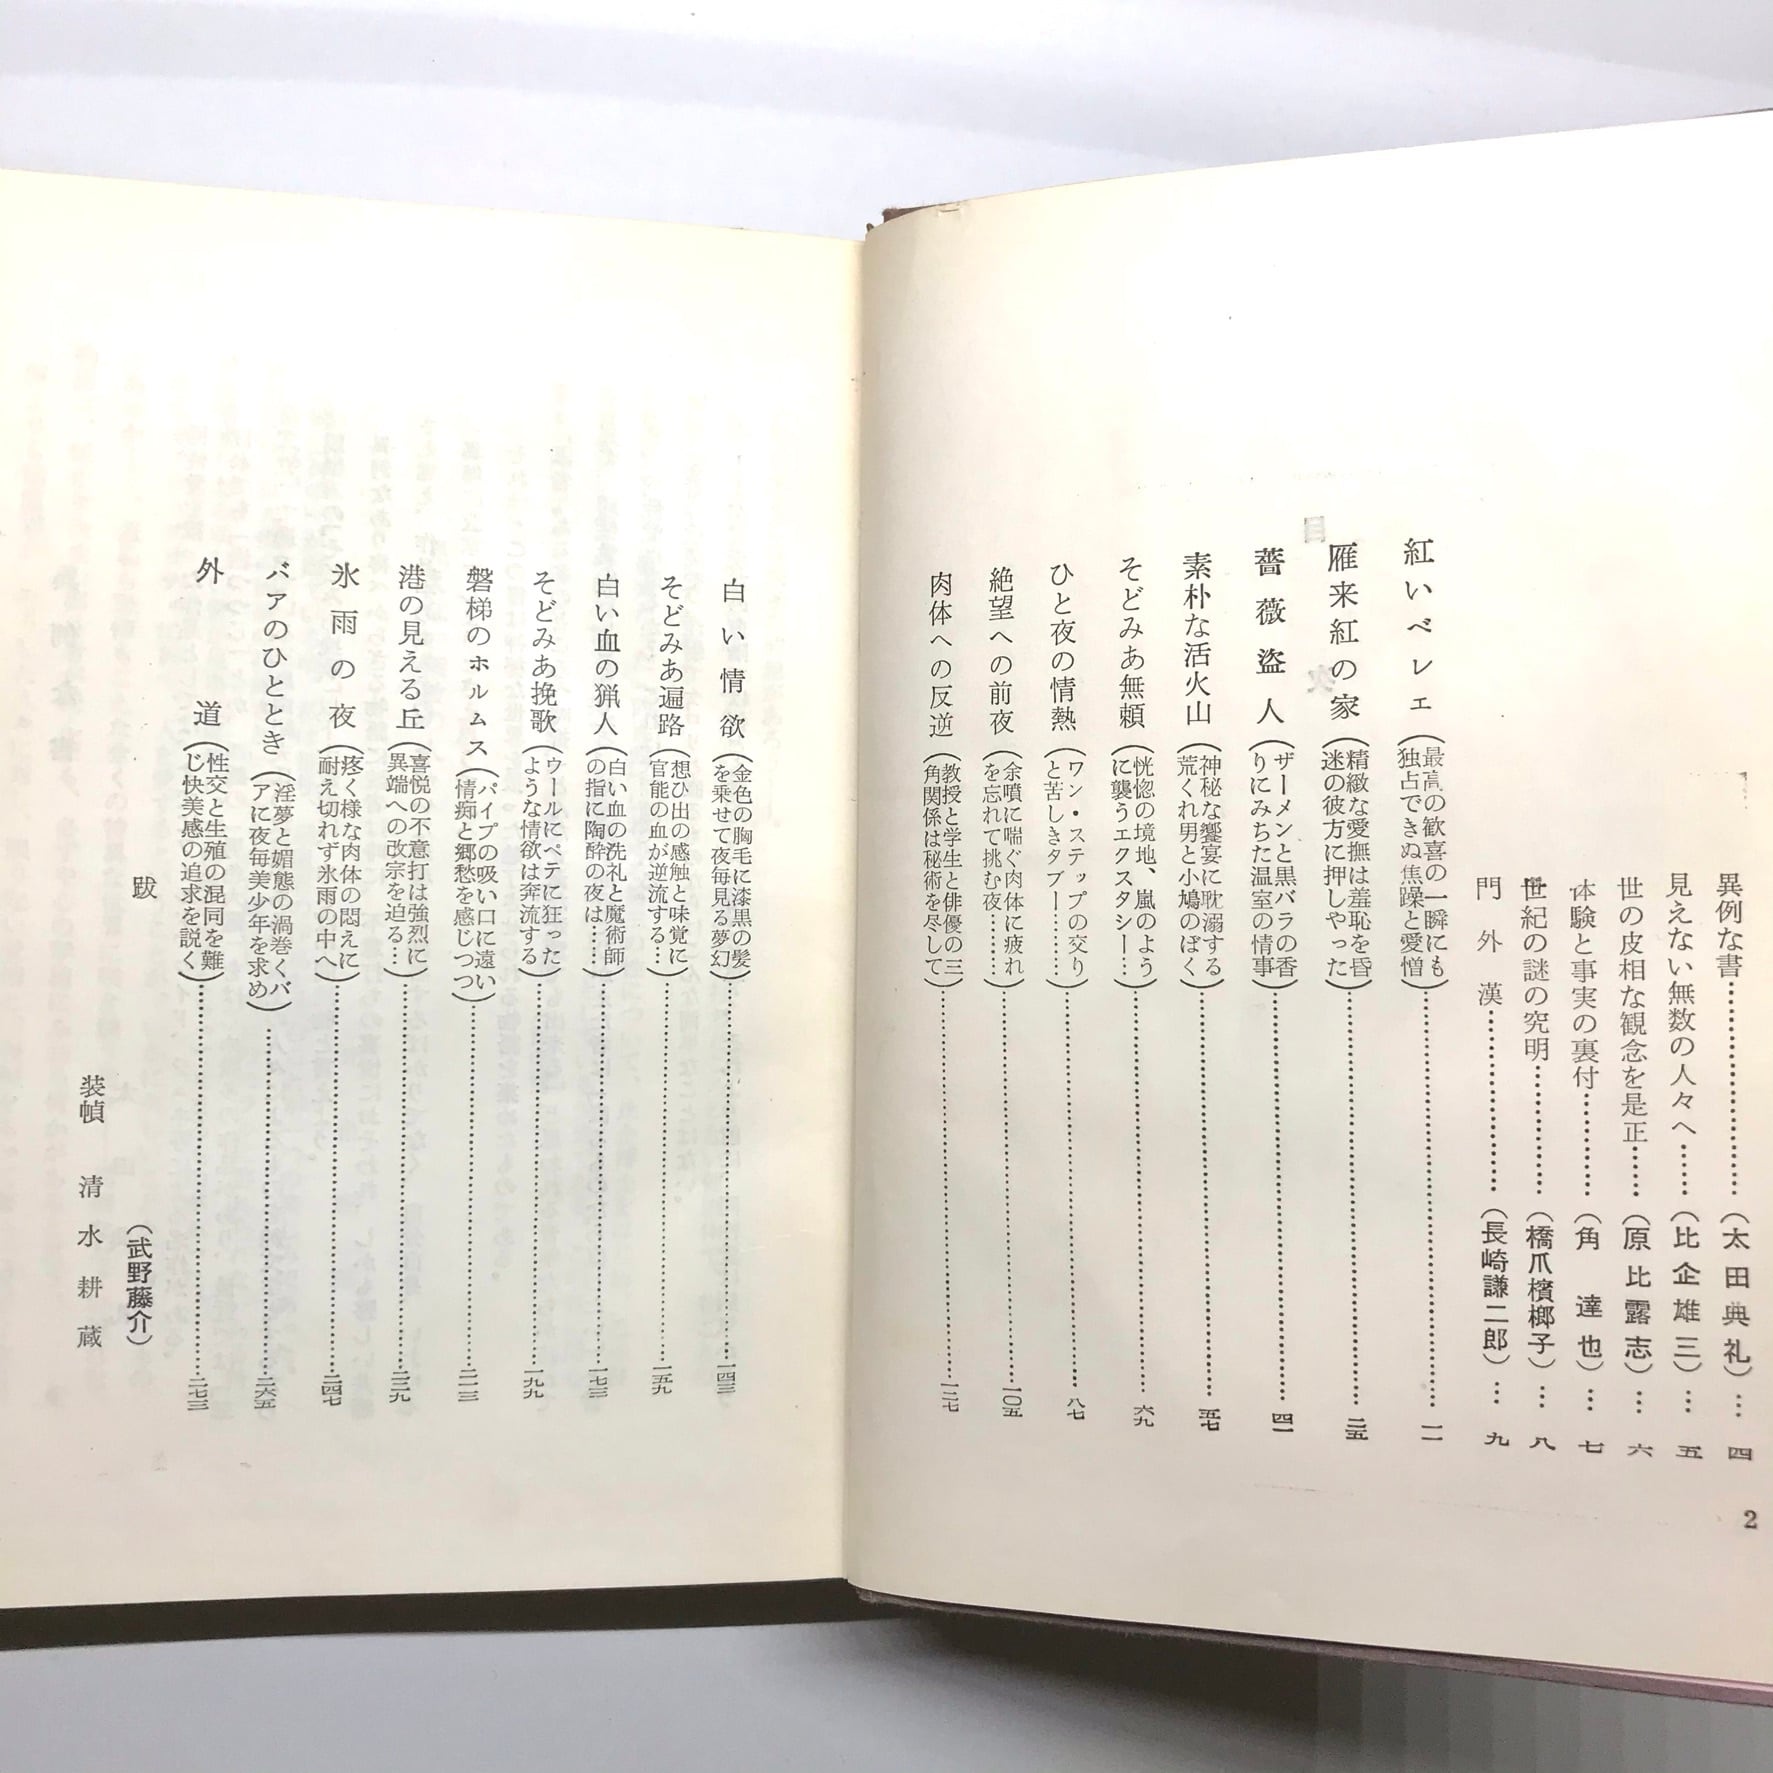 異例な書……………………(太田典礼)… 四
見えない無数の人々へ……(比企雄三)… 五
世の皮相な観念を是正……(原比露志)… 六
体験と事実の裏付…………(角 達也)… 七
世紀の謎の究明……………(橋爪檳榔子)… 八
門外漢………………………(長崎謙二郎)… 九
紅いベレエ(最高の歓喜の一瞬にも
独占できぬ焦躁と愛憎)……………一一
雁来紅の家(精緻な愛撫は羞恥を昏
迷の彼方に押しやった)……………二五
薔薇盗人(ザーメンと黒バラの香
りにみちた温室の情事)……………四一
素朴な活火山(神秘な饗宴に耽溺する
荒くれ男と小鳩のぼく)……………五七
そどみあ無頼(恍惚の境地、嵐のよう
に襲うエクスタシー…)……………六九
ひと夜の情熱(ワン・ステップの交り
と苦しきタブー………)……………八七
絶望への前夜(余噴に喘ぐ肉体に疲れ
を忘れて挑む夜………)……………一〇五
肉体への反逆(教授と学生と俳優の三
角関係は秘術を尽して)……………一二七
目次
2
白い情欲(金色の胸毛に漆黒の髪
を乗せて夜毎見る夢幻)……………一四三
そどみあ遍路(想ひ出の感触と味覚に
官能の血が逆流する…)……………一五九
白い血の猟人(白い血の洗礼と魔術師
の指に陶酔の夜は……)……………一七三
そどみあ挽歌(ウールにペテに狂った
ような情欲は奔流する)……………一九九
磐梯のホルムス(パイプの吸い口に遠い
情痴と郷愁を感じつつ)……………二一三
港の見える丘(喜悦の不意打は強烈に
異端への改宗を迫る…)……………二二九
氷雨の夜(疼く様な肉体の悶えに
耐え切れず氷雨の中へ)……………二四七
バアのひととき(淫夢と媚態の渦巻くバ
アに夜毎美少年を求め)……………二六五
外道(性交と生殖の混同を難
じ快美感の追求を説く)……………二七三
跋(武野藤介)
装幀 清水耕蔵